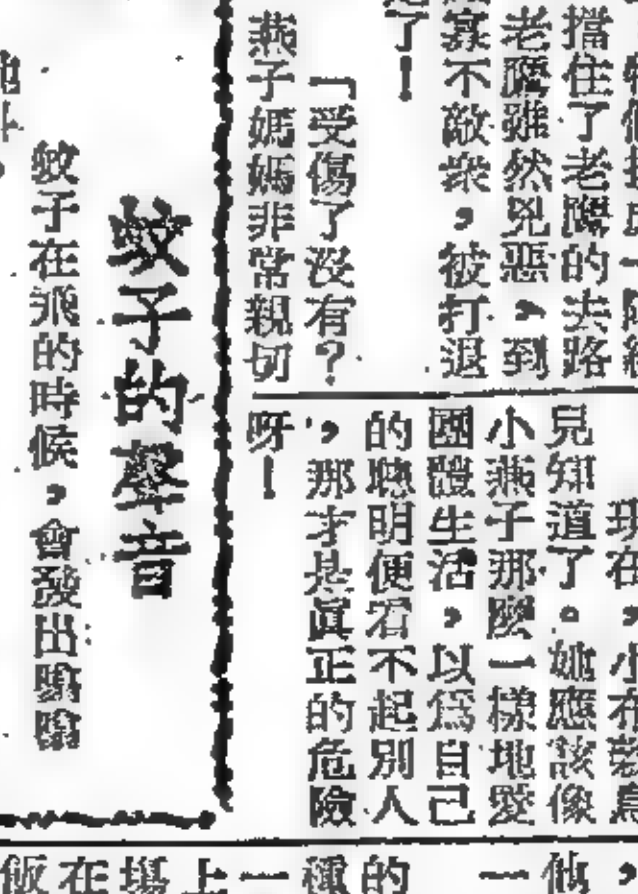 擋住了老鷹的去路
老鷹雖然兇惡，到
寡不敵衆，被打退
了！
「受傷了沒有？
燕子媽媽非常親切
現在，小布穀鳥
見知道了。她應該像
小燕子那麼一樣地愛
團體生活，以爲自己
的聰明便看不起別人
，那才是眞正的危險
呀！
蚊子的聲音
蚊子在飛的時候，會發出嗡嗡
他，
一
的
種
一
上
場
在
飯